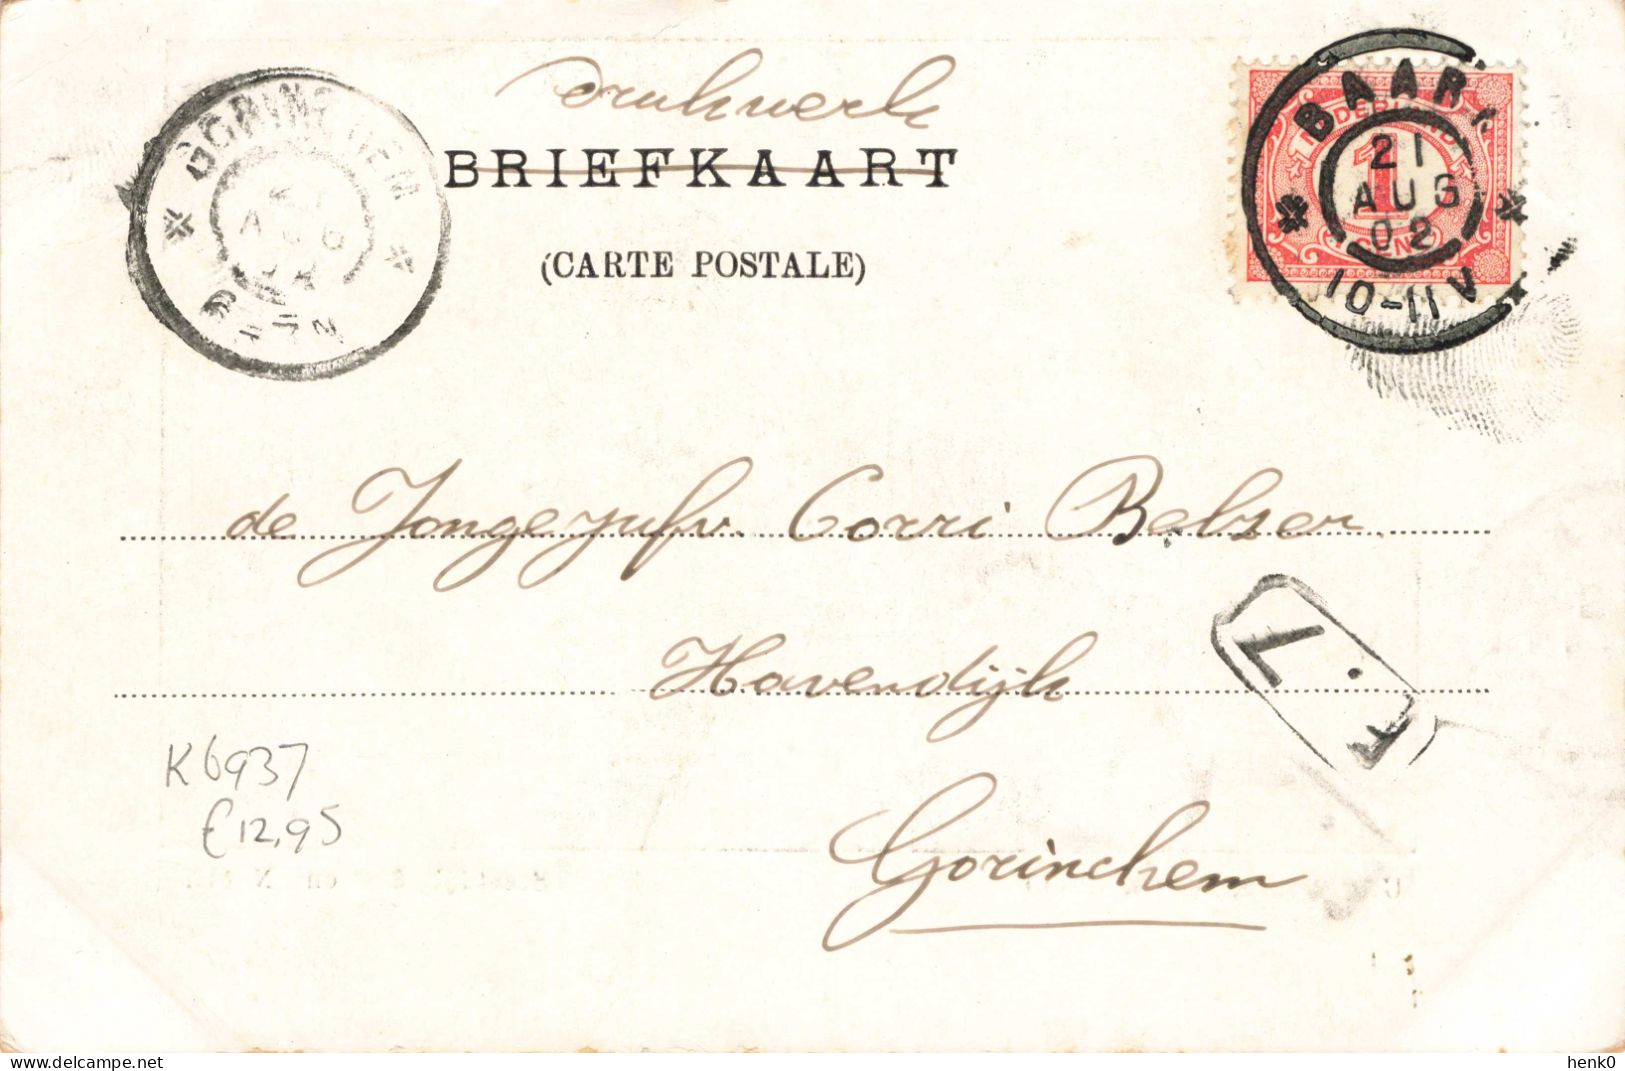 drukwerk
BRIEFKAART
(CARTE POSTALE)
GORINCHEM
AUG
6-7N
BAARN
21
AUG
02
10-11V
NEDERLAND
1
CENT
de Jongejufv. Corri Belzer
Havendijk
Gorinchem
F.7
K6937
€12,95
delcampe.net
henk0